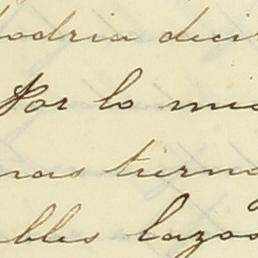 podria decir
Por lo mis
mas tierna
ables lazos